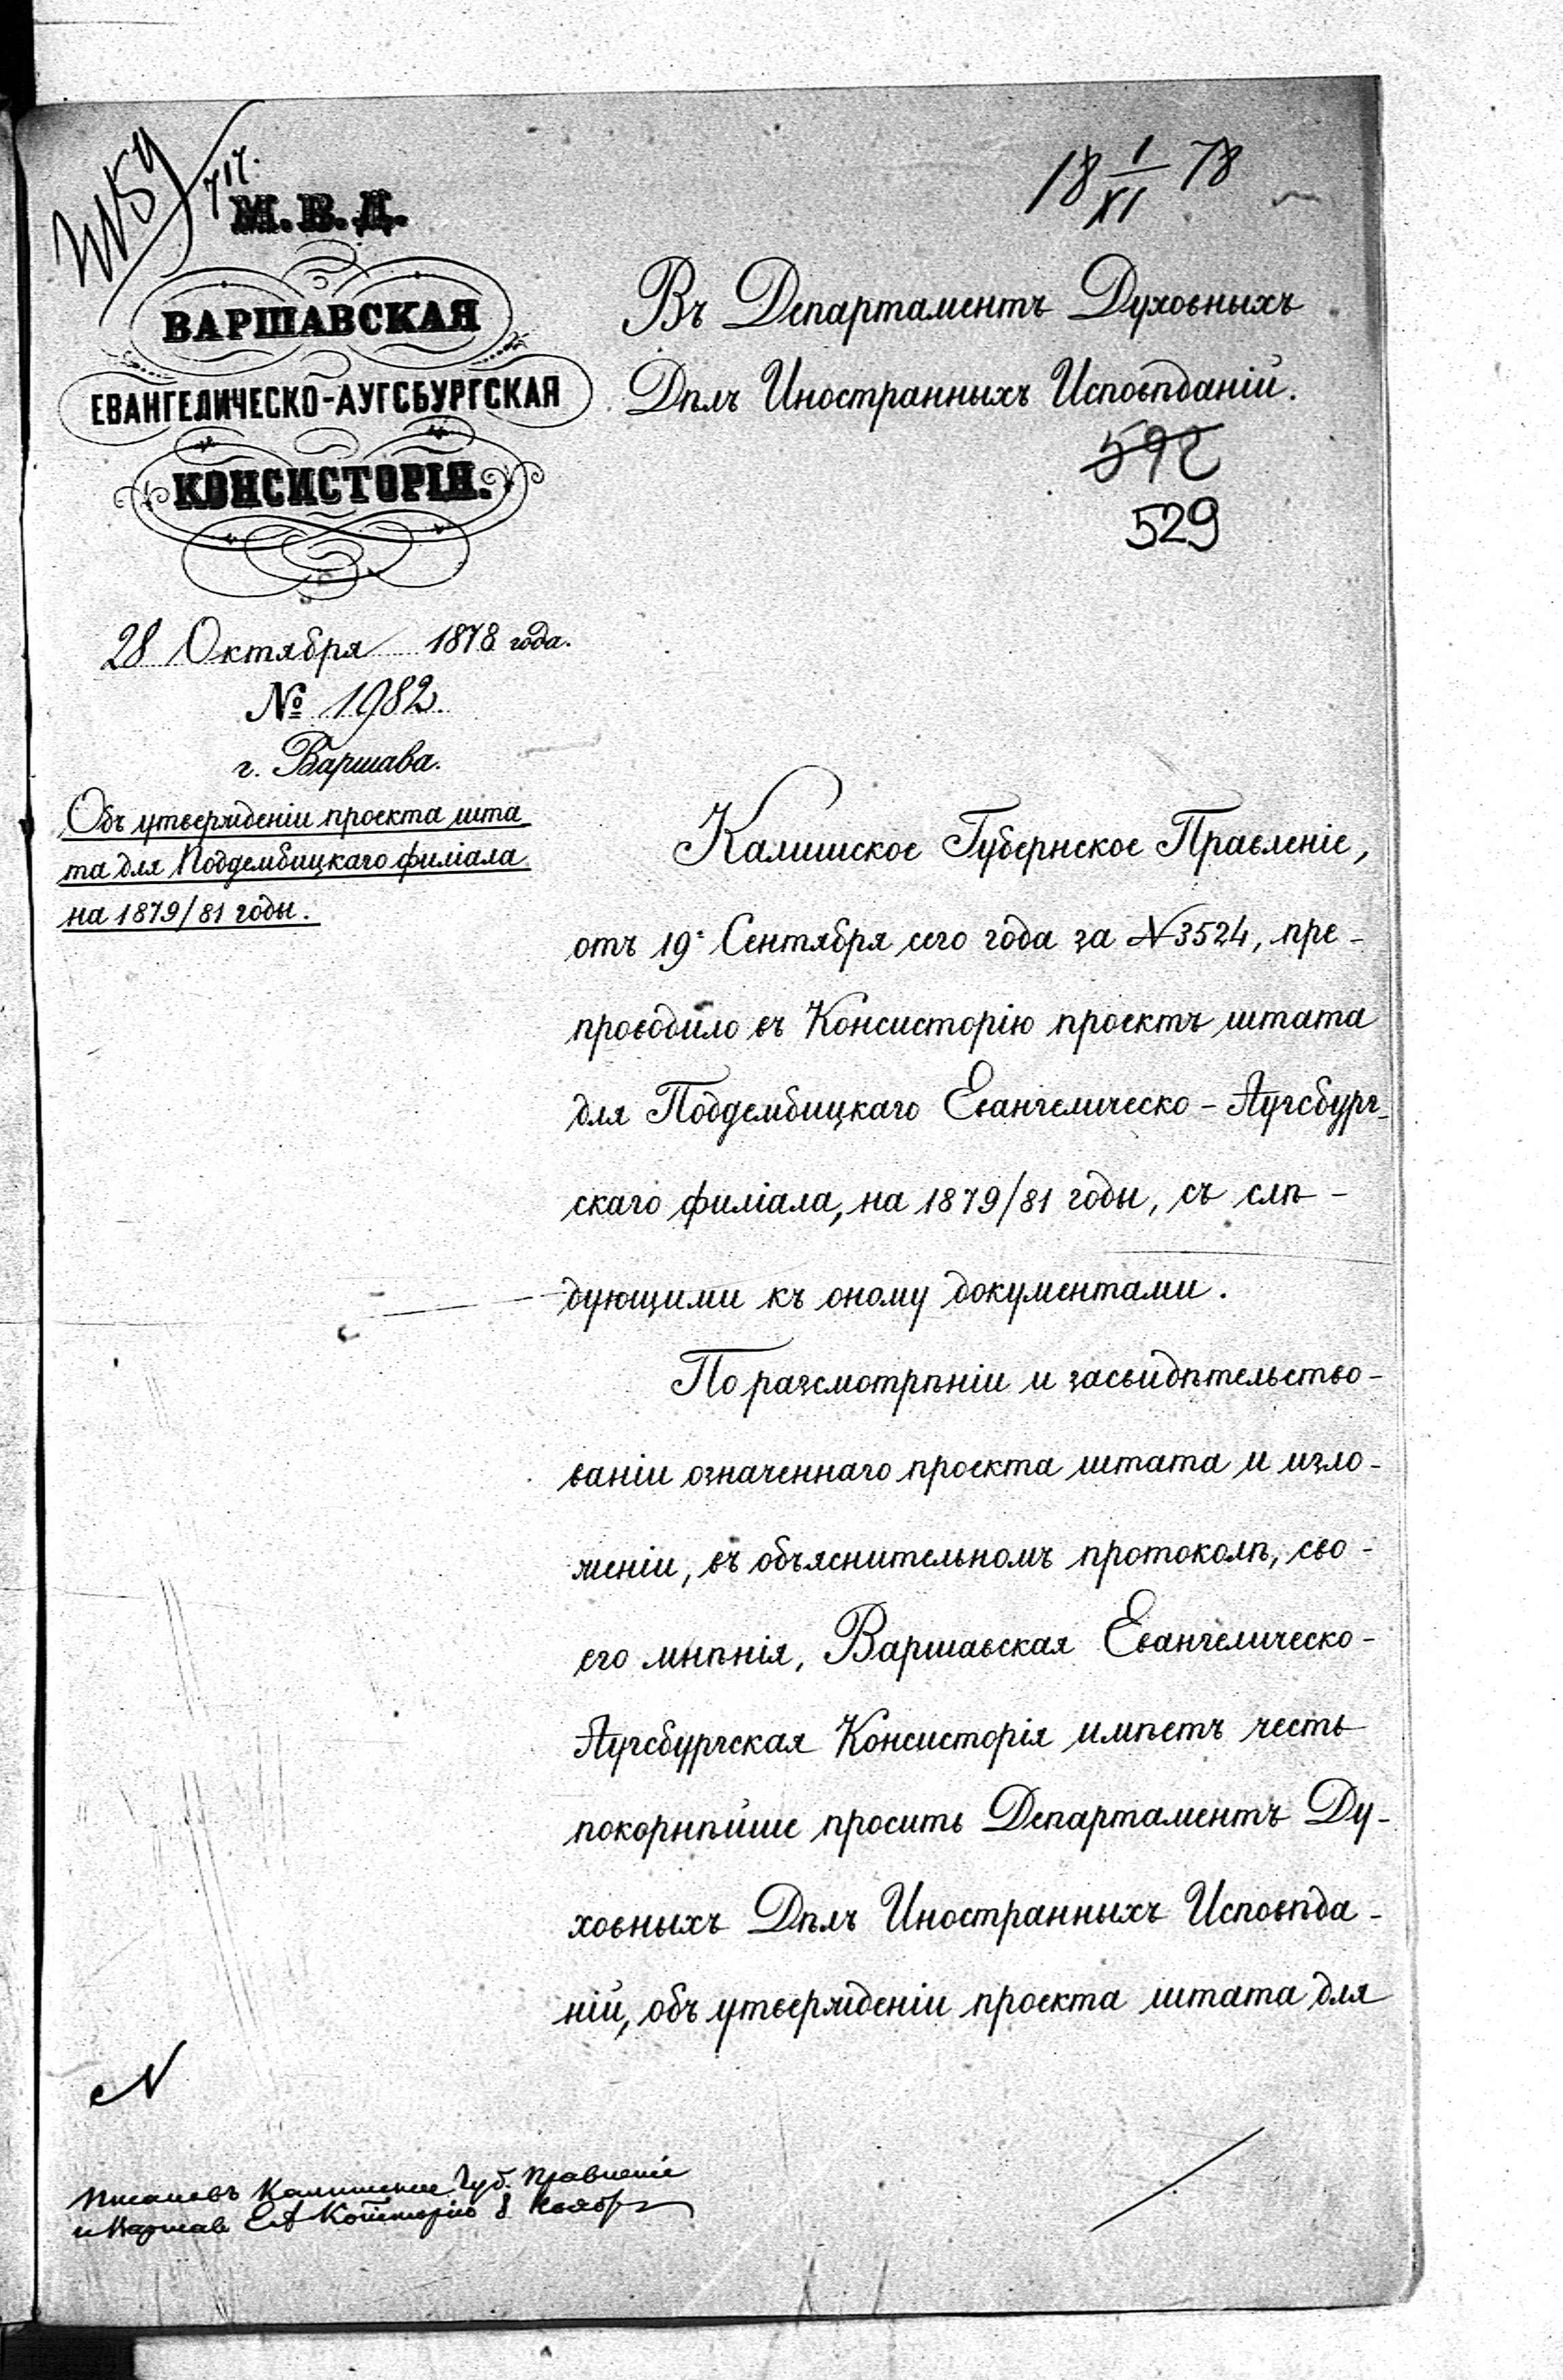 М. В. Д.
ВАРШАВСКАЯ
ЕВАНГЕЛИЧЕСКО-АУГСБУРГСКАЯ
КОНСИСТОРІЯ.
28 Октября 1878 года.
№ 1982
г. Варшава.
Объ утвержденіи проекта шта
та для Поддембицкаго филіала
на 1879/81 годы.
18 I/XI 78
Въ Департаментъ Духовныхъ
Дѣлъ Иностранныхъ Исповѣданій.
592
529
Калишское Губернское Правленіе,
отъ 19 Сентября сего года за № 3524, пре-
проводило въ Консисторію проектъ штата
для Поддембицкаго Евангелическо-Аугсбург-
скаго филіала, на 1879/81 годы, съ слѣ-
дующими къ оному документами.
По разсмотрѣніи и засвидѣтельство-
ваніи означеннаго проекта штата и изло-
женіи, въ объяснительномъ протоколѣ, сво-
его мнѣнія, Варшавская Евангелическо-
Аугсбургская Консисторія имѣетъ честь
покорнѣйше просить Департаментъ Ду-
ховныхъ Дѣлъ Иностранныхъ Исповѣда-
ній, объ утвержденіи проекта штата для
N
Калишское Губ. Правленіе
и Варшав ЕА Консисторію 8 Ноября